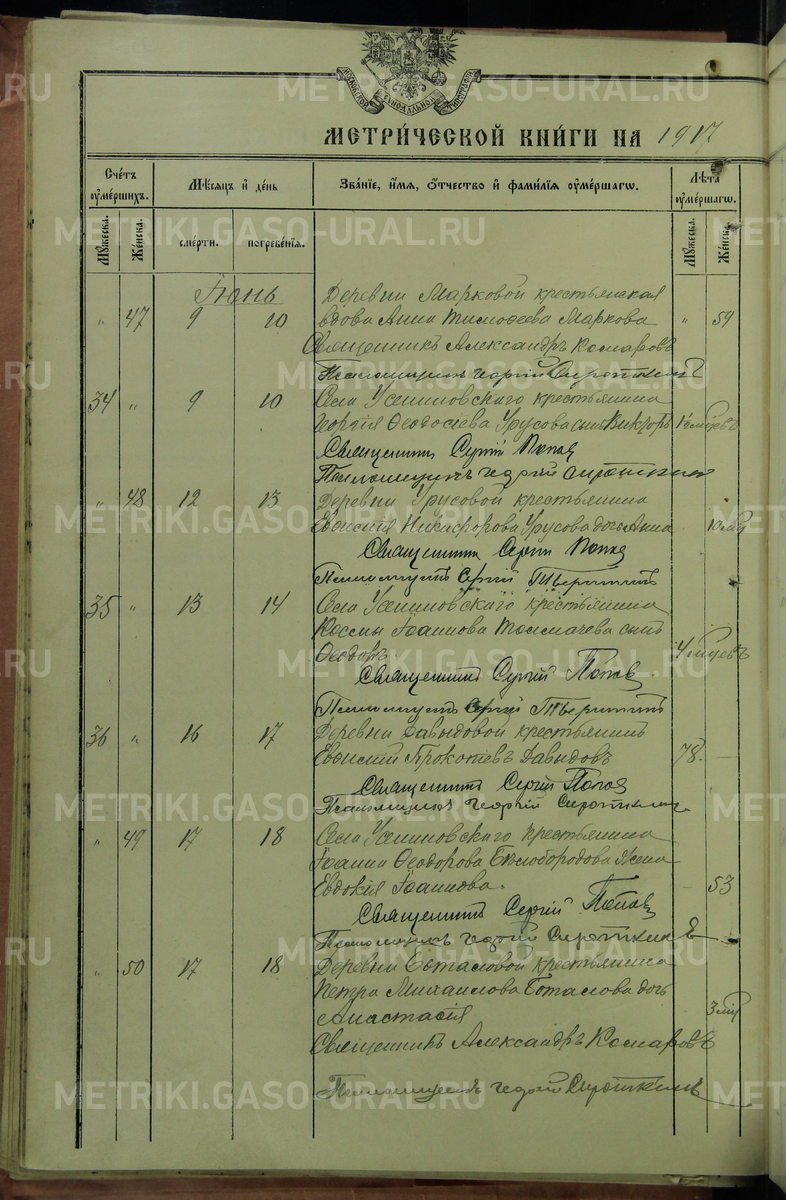 МОСКОВСКОЙ СѴНОДАЛЬНОЙ ТИПОГРАФІИ
МЕТРИ́ЧЕСКОЙ КНИ́ГИ НА 1917
Сче́тъ ᲂу҆ме́ршихъ.
Мѣ́сяцъ и҆ де́нь
Зва́нїе, и҆́мя, ѻ҆́тчество и҆ фами́лїя ᲂу҆ме́ршагѡ.
Лѣ́та ᲂу҆ме́ршагѡ.
Мꙋ́жеска.
Же́нска.
сме́рти.
погребе́нїя.
Мꙋ́жеска.
Же́нска.
Іюнь
Деревни Марковой крестьянская
" 47 9 10 вдова Анна Тимоѳеева Маркова " 59
Священникъ Александръ Комаровъ
Псаломщикъ Георгій Сироткинъ
34 " 9 10 Села Усениновскаго крестьянина
Георгія Ѳеодосіева Урусова сынъ Викторъ
Священникъ Сергій Поповъ
Псаломщикъ Георгій Сироткинъ
" 48 12 13 Деревни Урусовой крестьянина
Евѳимія Никифорова Урусова дочь Анна
Священникъ Сергій Поповъ
Псаломщикъ Сергій
35 " 13 14 Села Усениновскаго крестьянина
Космы Іоаннова Толмачева сынъ
Ѳеодоръ. 4 мѣсяцевъ
Священникъ Сергій Поповъ
Псаломщикъ Сергій
36 " 16 17 Деревни Давыдовой крестьянинъ
Евѳимій Прокопіевъ Давыдовъ 78. —
Священникъ Сергій Поповъ
Псаломщикъ Георгій Сироткинъ
" 49 17 18 Села Усениновскаго крестьянина
Іоанна Ѳеодорова Бѣлобородова жена
Евдокія Іоаннова. - 53
Священникъ Сергій Поповъ
Псаломщикъ Георгій Сироткинъ
" 50 17 18 Деревни Боталовой крестьянина
Петра Михаилова Боталова дочь
Анастасія 3 мѣс
Священникъ Александръ Комаровъ
Псаломщикъ Георгій Сироткинъ
METRIKI.GASO-URAL.RU